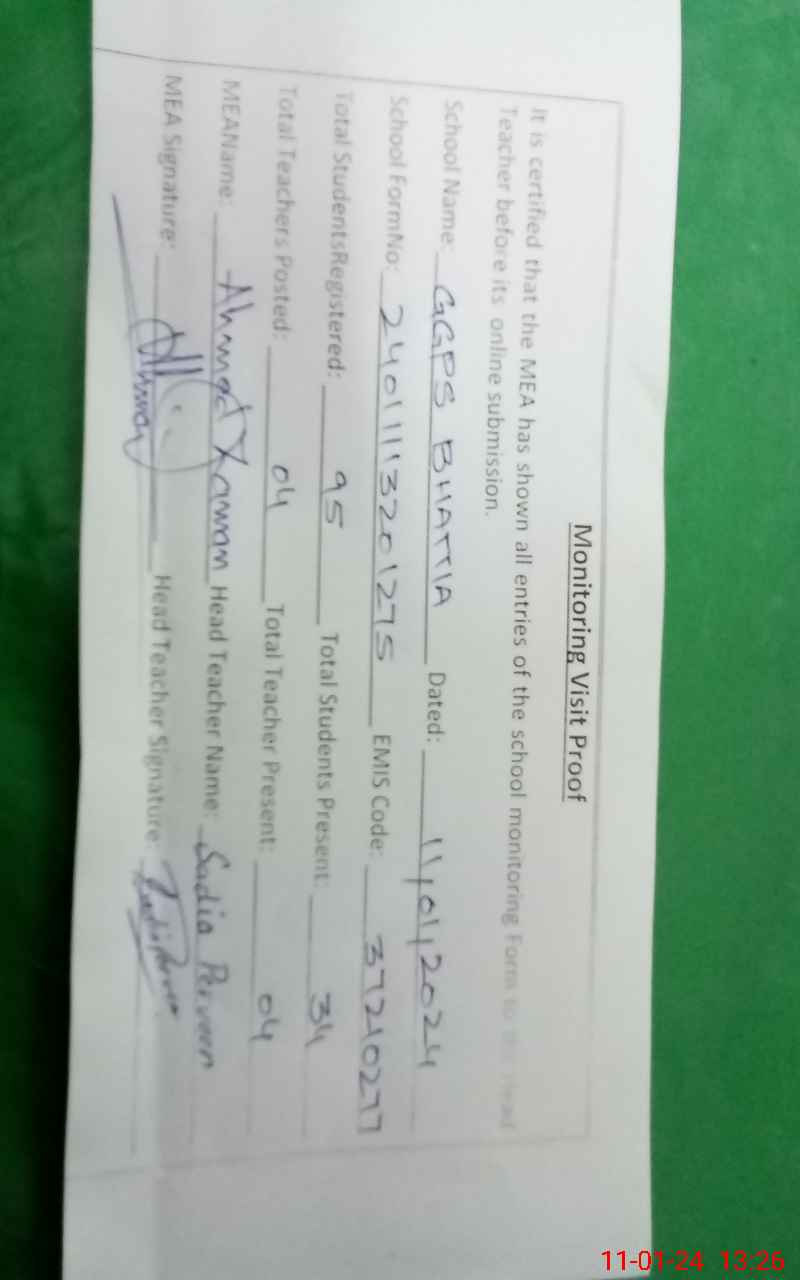 Monitoring Visit Proof
It is certified that the MEA has shown all entries of the school monitoring Form to the Head
Teacher before its online submission.
School Name: GGPS BHATTIA Dated: 11/01/2024
School FormNo: 24011113201275 EMIS Code: 37210277
Total StudentsRegistered: 95 Total Students Present: 34
Total Teachers Posted: 04 Total Teacher Present: 04
MEAName: Ahmad Head Teacher Name: Sadia Perveen
MEA Signature: Head Teacher Signature:
11-01-24 13:26